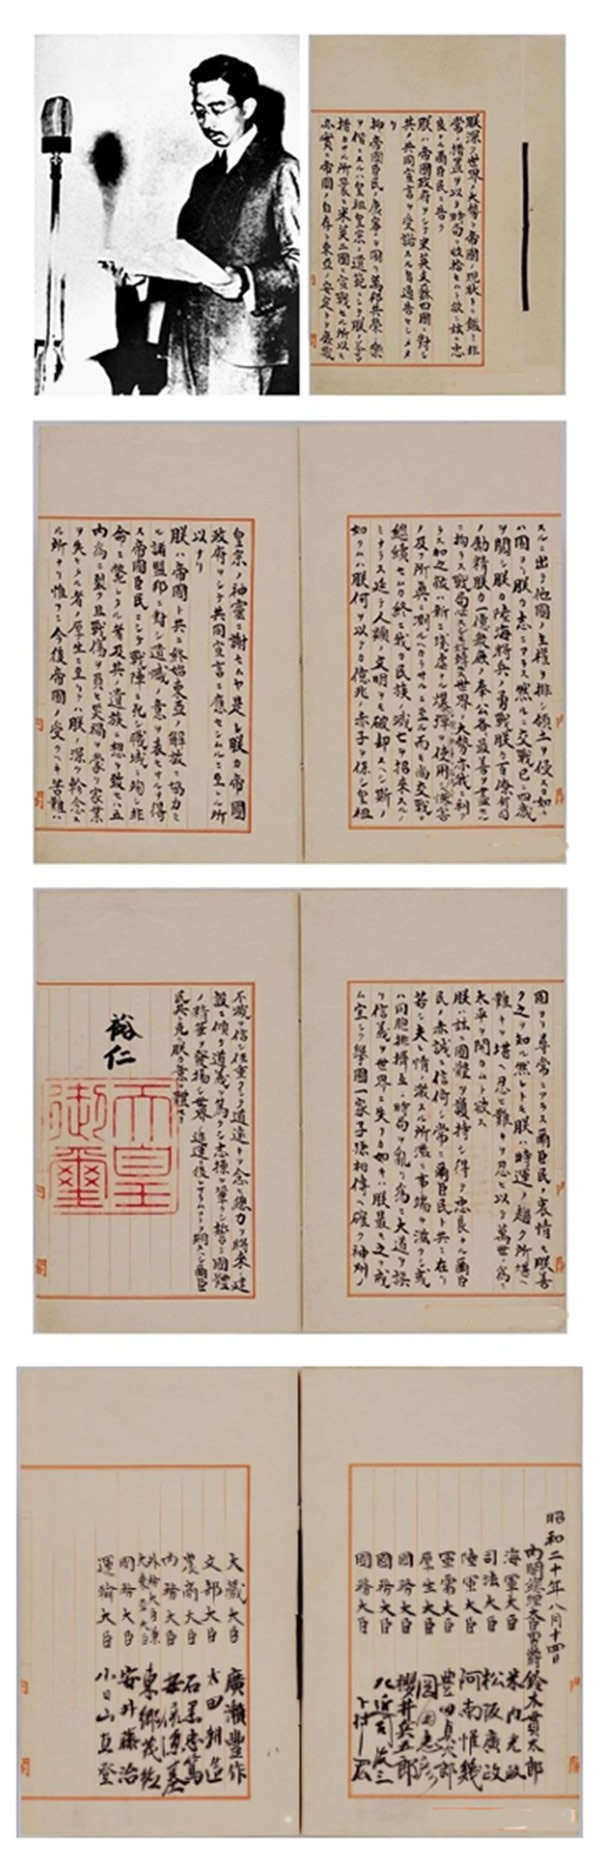 朕深ク世界ノ大勢ト帝國ノ現狀トニ鑑ミ非
常ノ措置ヲ以テ時局ヲ收拾セムト欲シ茲ニ忠
良ナル爾臣民ニ告ク
朕ハ帝國政府ヲシテ米英支蘇四國ニ對シ
其ノ共同宣言ヲ受諾スル旨通告セシメタ
リ
抑帝國臣民ノ康寧ヲ圖リ萬邦共榮ノ樂
ヲ偕ニスルハ皇祖皇宗ノ遺範ニシテ朕ノ拳々
措カサル所曩ニ米英二國ニ宣戰セル所以モ
亦實ニ帝國ノ自存ト東亞ノ安定トヲ庶幾
スルニ出テ他國ノ主權ヲ排シ領土ヲ侵スカ如キ
ハ固ヨリ朕カ志ニアラス然ルニ交戰已ニ四歲
ヲ閱シ朕カ陸海將兵ノ勇戰朕カ百僚有司
ノ勵精朕カ一億衆庶ノ奉公各最善ヲ盡セル
ニ拘ラス戰局必スシモ好轉セス世界ノ大勢亦我ニ利ア
ラス加之敵ハ新ニ殘虐ナル爆彈ヲ使用シ慘害
ノ及フ所眞ニ測ルヘカラサルニ至ル而モ尚交戰ヲ
繼續セムカ終ニ我カ民族ノ滅亡ヲ招來スルノ
ミナラス延テ人類ノ文明ヲモ破却スヘシ斯ノ
如クムハ朕何ヲ以テカ億兆ノ赤子ヲ保シ皇祖
皇宗ノ神靈ニ謝セムヤ是レ朕カ帝國
政府ヲシテ共同宣言ニ應セシムルニ至レル所
以ナリ
朕ハ帝國ト共ニ終始東亞ノ解放ニ協力セ
ル諸盟邦ニ對シ遺憾ノ意ヲ表セサルヲ得
ス帝國臣民ニシテ戰陣ニ死シ職域ニ殉シ非
命ニ斃レタル者及其ノ遺族ニ想ヲ致セハ五
內為ニ裂ク且戰傷ヲ負ヒ災禍ヲ蒙リ家業
ヲ失ヒタル者ノ厚生ニ至リテハ朕ノ深ク軫念ス
ル所ナリ惟フニ今後帝國ノ受クヘキ苦難ハ
固ヨリ尋常ニアラス爾臣民ノ衷情モ朕善
ク之ヲ知ル然レトモ朕ハ時運ノ趨ク所堪ヘ
難キヲ堪ヘ忍ヒ難キヲ忍ヒ以テ萬世ノ為ニ
太平ヲ開カムト欲ス
朕ハ茲ニ國體ヲ護持シ得テ忠良ナル爾臣
民ノ赤誠ニ信倚シ常ニ爾臣民ト共ニ在リ
若シ夫レ情ノ激スル所濫ニ事端ヲ滋クシ或
ハ同胞排擠互ニ時局ヲ亂リ為ニ大道ヲ誤
リ信義ヲ世界ニ失フカ如キハ朕最モ之ヲ戒
ム宜シク擧國一家子孫相傳ヘ確ク神州ノ
不滅ヲ信シ任重クシテ道遠キヲ念ヒ總力ヲ將來ノ建
設ニ傾ケ道義ヲ篤クシ志操ヲ鞏クシ誓テ國體
ノ精華ヲ發揚シ世界ノ進運ニ後レサラムコトヲ期スヘシ爾臣
民其レ克ク朕カ意ヲ體セヨ
裕仁
天皇
御璽
昭和二十年八月十四日
內閣總理大臣男爵 鈴木貫太郎
海軍大臣 米內光政
司法大臣 松阪廣政
陸軍大臣 阿南惟幾
軍需大臣 豐田貞次郎
厚生大臣 岡田忠彥
國務大臣 櫻井兵五郎
國務大臣 左近司政三
國務大臣 下村宏
大藏大臣 廣瀨豐作
文部大臣 太田耕造
農商大臣 石黑忠篤
內務大臣 安倍源基
外務大臣兼大東亞大臣 東鄉茂德
國務大臣 安井藤治
運輸大臣 小日山直登